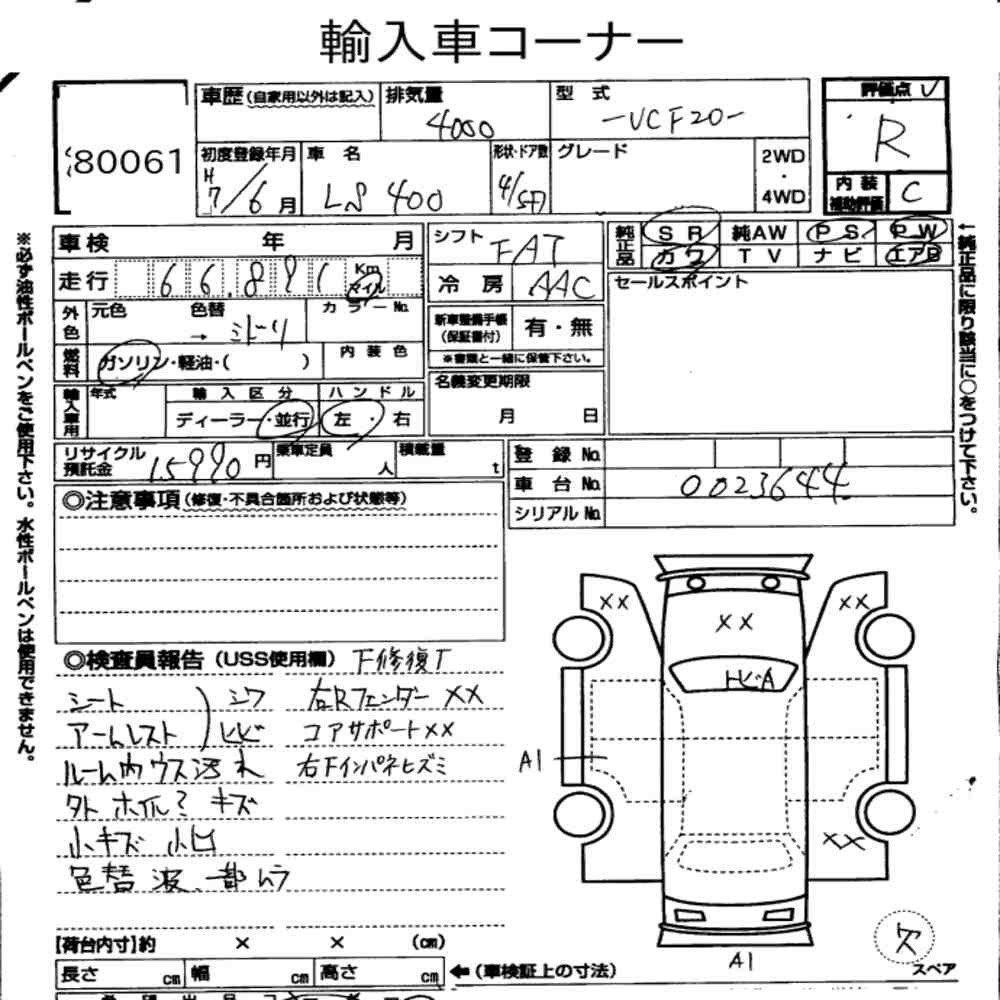 輸入車コーナー
80061
車歴(自家用以外は記入)
排気量
4000
型式
-UCF20-
評価点
R
初度登録年月
H7/6月
車名
LS 400
形状・ドア数
4/SD
グレード
2WD
・
4WD
内装補助評価
C
車検 年 月
シフト
FAT
純正品
SR 純AW PS PW
カワ TV ナビ エアB
走行
66,891
Km
マイル
冷房
AAC
セールスポイント
外色
元色 色替
→ミドリ
カラーNo.
新車整備手帳
(保証書付)
有・無
※書類と一緒に保管下さい。
燃料
ガソリン・軽油・( )
内装色
名義変更期限
月 日
輸入車用
年式
輸入区分
ハンドル
ディーラー・並行
左・右
リサイクル預託金
15990円
乗車定員
人
積載量
t
登録No.
車台No.
0023644
シリアルNo.
◎注意事項(修復・不具合箇所および状態等)
◎検査員報告(USS使用欄)
下修復T
シート
シワ
右Rフェンダー××
アームレスト
ヒビ
コアサポート××
ルーム内ウス汚れ
右Fインパネヒズミ
外 ホイル ミ キズ
小キズ 小凹
色替 波、一部ムラ
××
××
××
トビA
A1
××
A1
欠
スペア
【荷台内寸】約 × × (cm)
長さ cm 幅 cm 高さ cm
←(車検証上の寸法)
※必ず油性ボールペンをご使用下さい。水性ボールペンは使用できません。
←純正品に限り該当に○をつけて下さい。